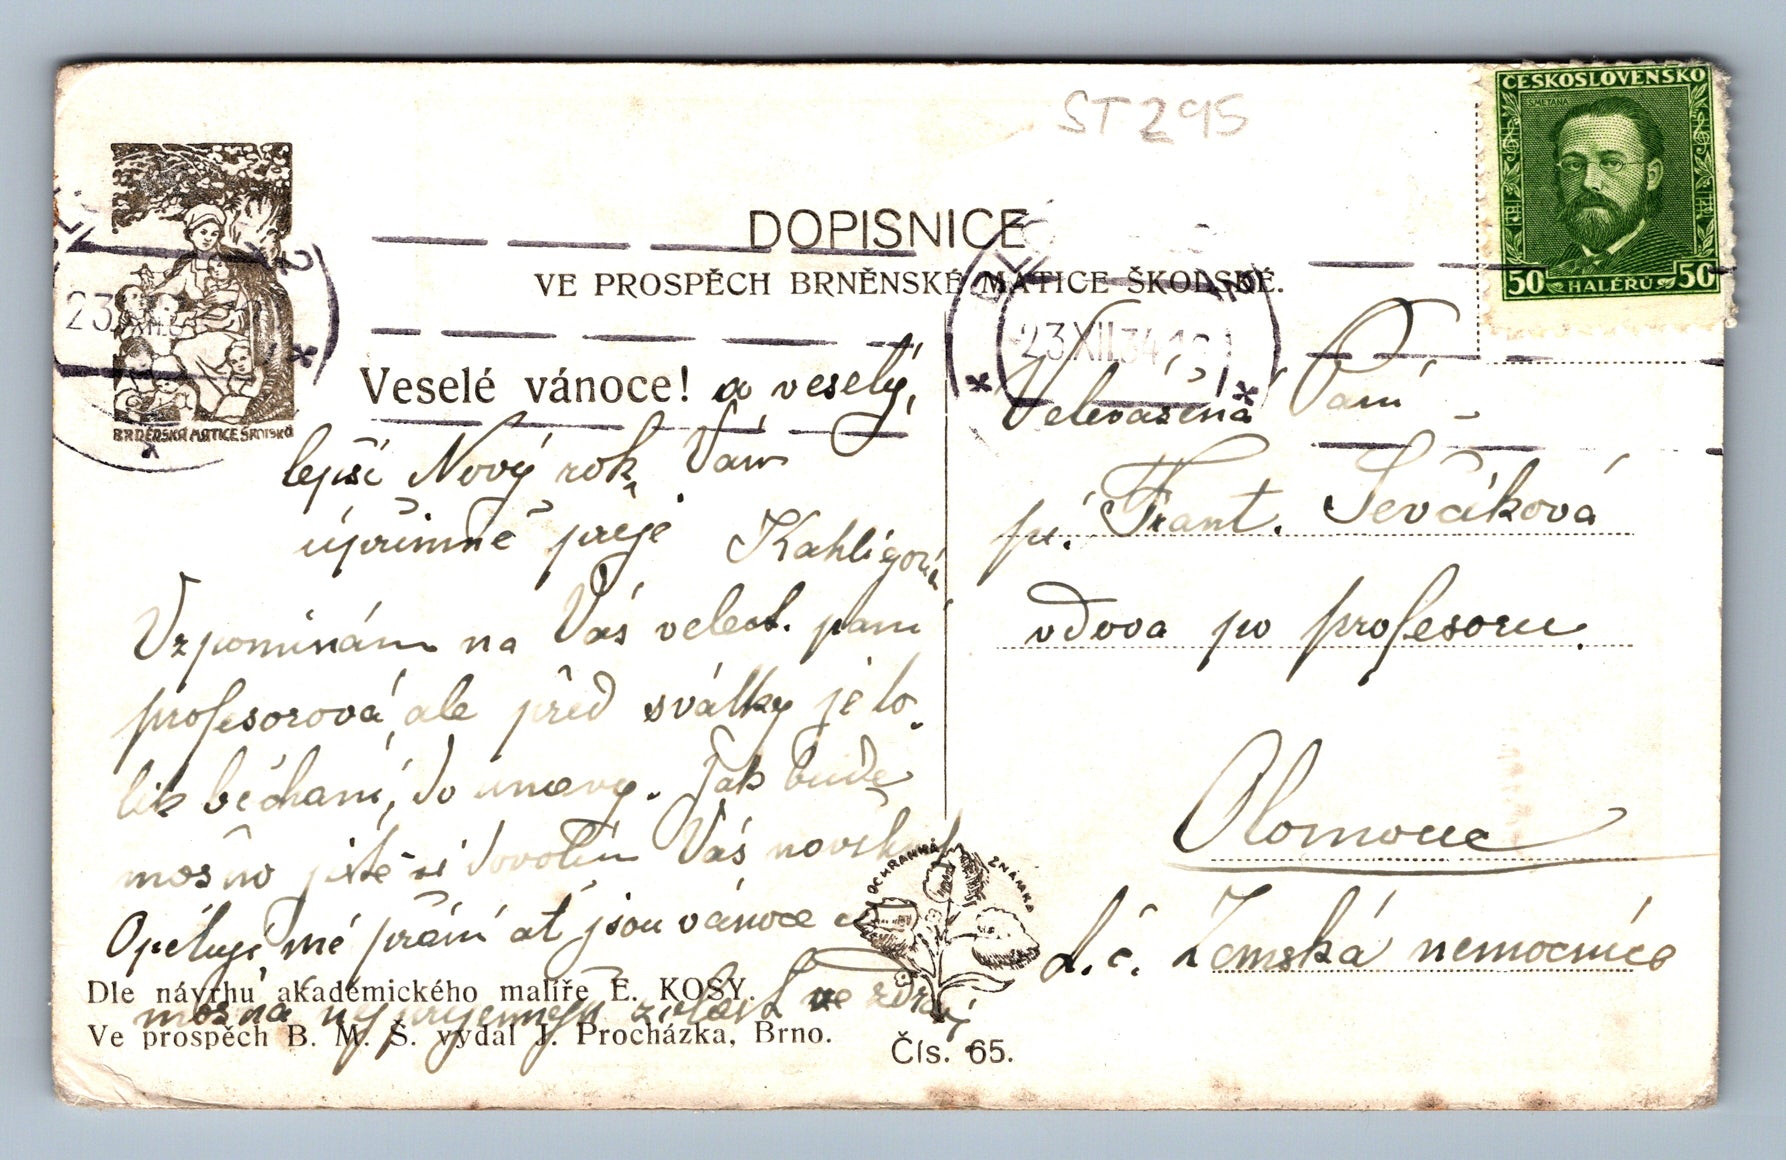 ST 295
ČESKOSLOVENSKO
SMETANA
50 HALÉRŮ 50
DOPISNICE
VE PROSPĚCH BRNĚNSKÉ MATICE ŠKOLSKÉ.
23 XII 34
BRNĚNSKÁ MATICE ŠKOLSKÁ
Veselé vánoce! a veselý,
lepší Nový rok, Vám
upřimně přeje Kahligová
Vzpomínám na Vás velect. paní
profesorová, ale před svátky je to-
lik běhaní, do unavy. Jak bude
možno jistě si dovolím Vás
Opětuji mé přání ať jsou vánoce
možná nejpříjemnější ve zdraví
Dle návrhu akademického malíře E. KOSY.
Ve prospěch B. M. Š. vydal J. Procházka, Brno.
OCHRANNÁ ZNÁMKA
Čís. 65.
Velevážená Paní
pí. Frant. Ševčíková
vdova po profesoru.
Olomouc
d.č. Zemská nemocnice